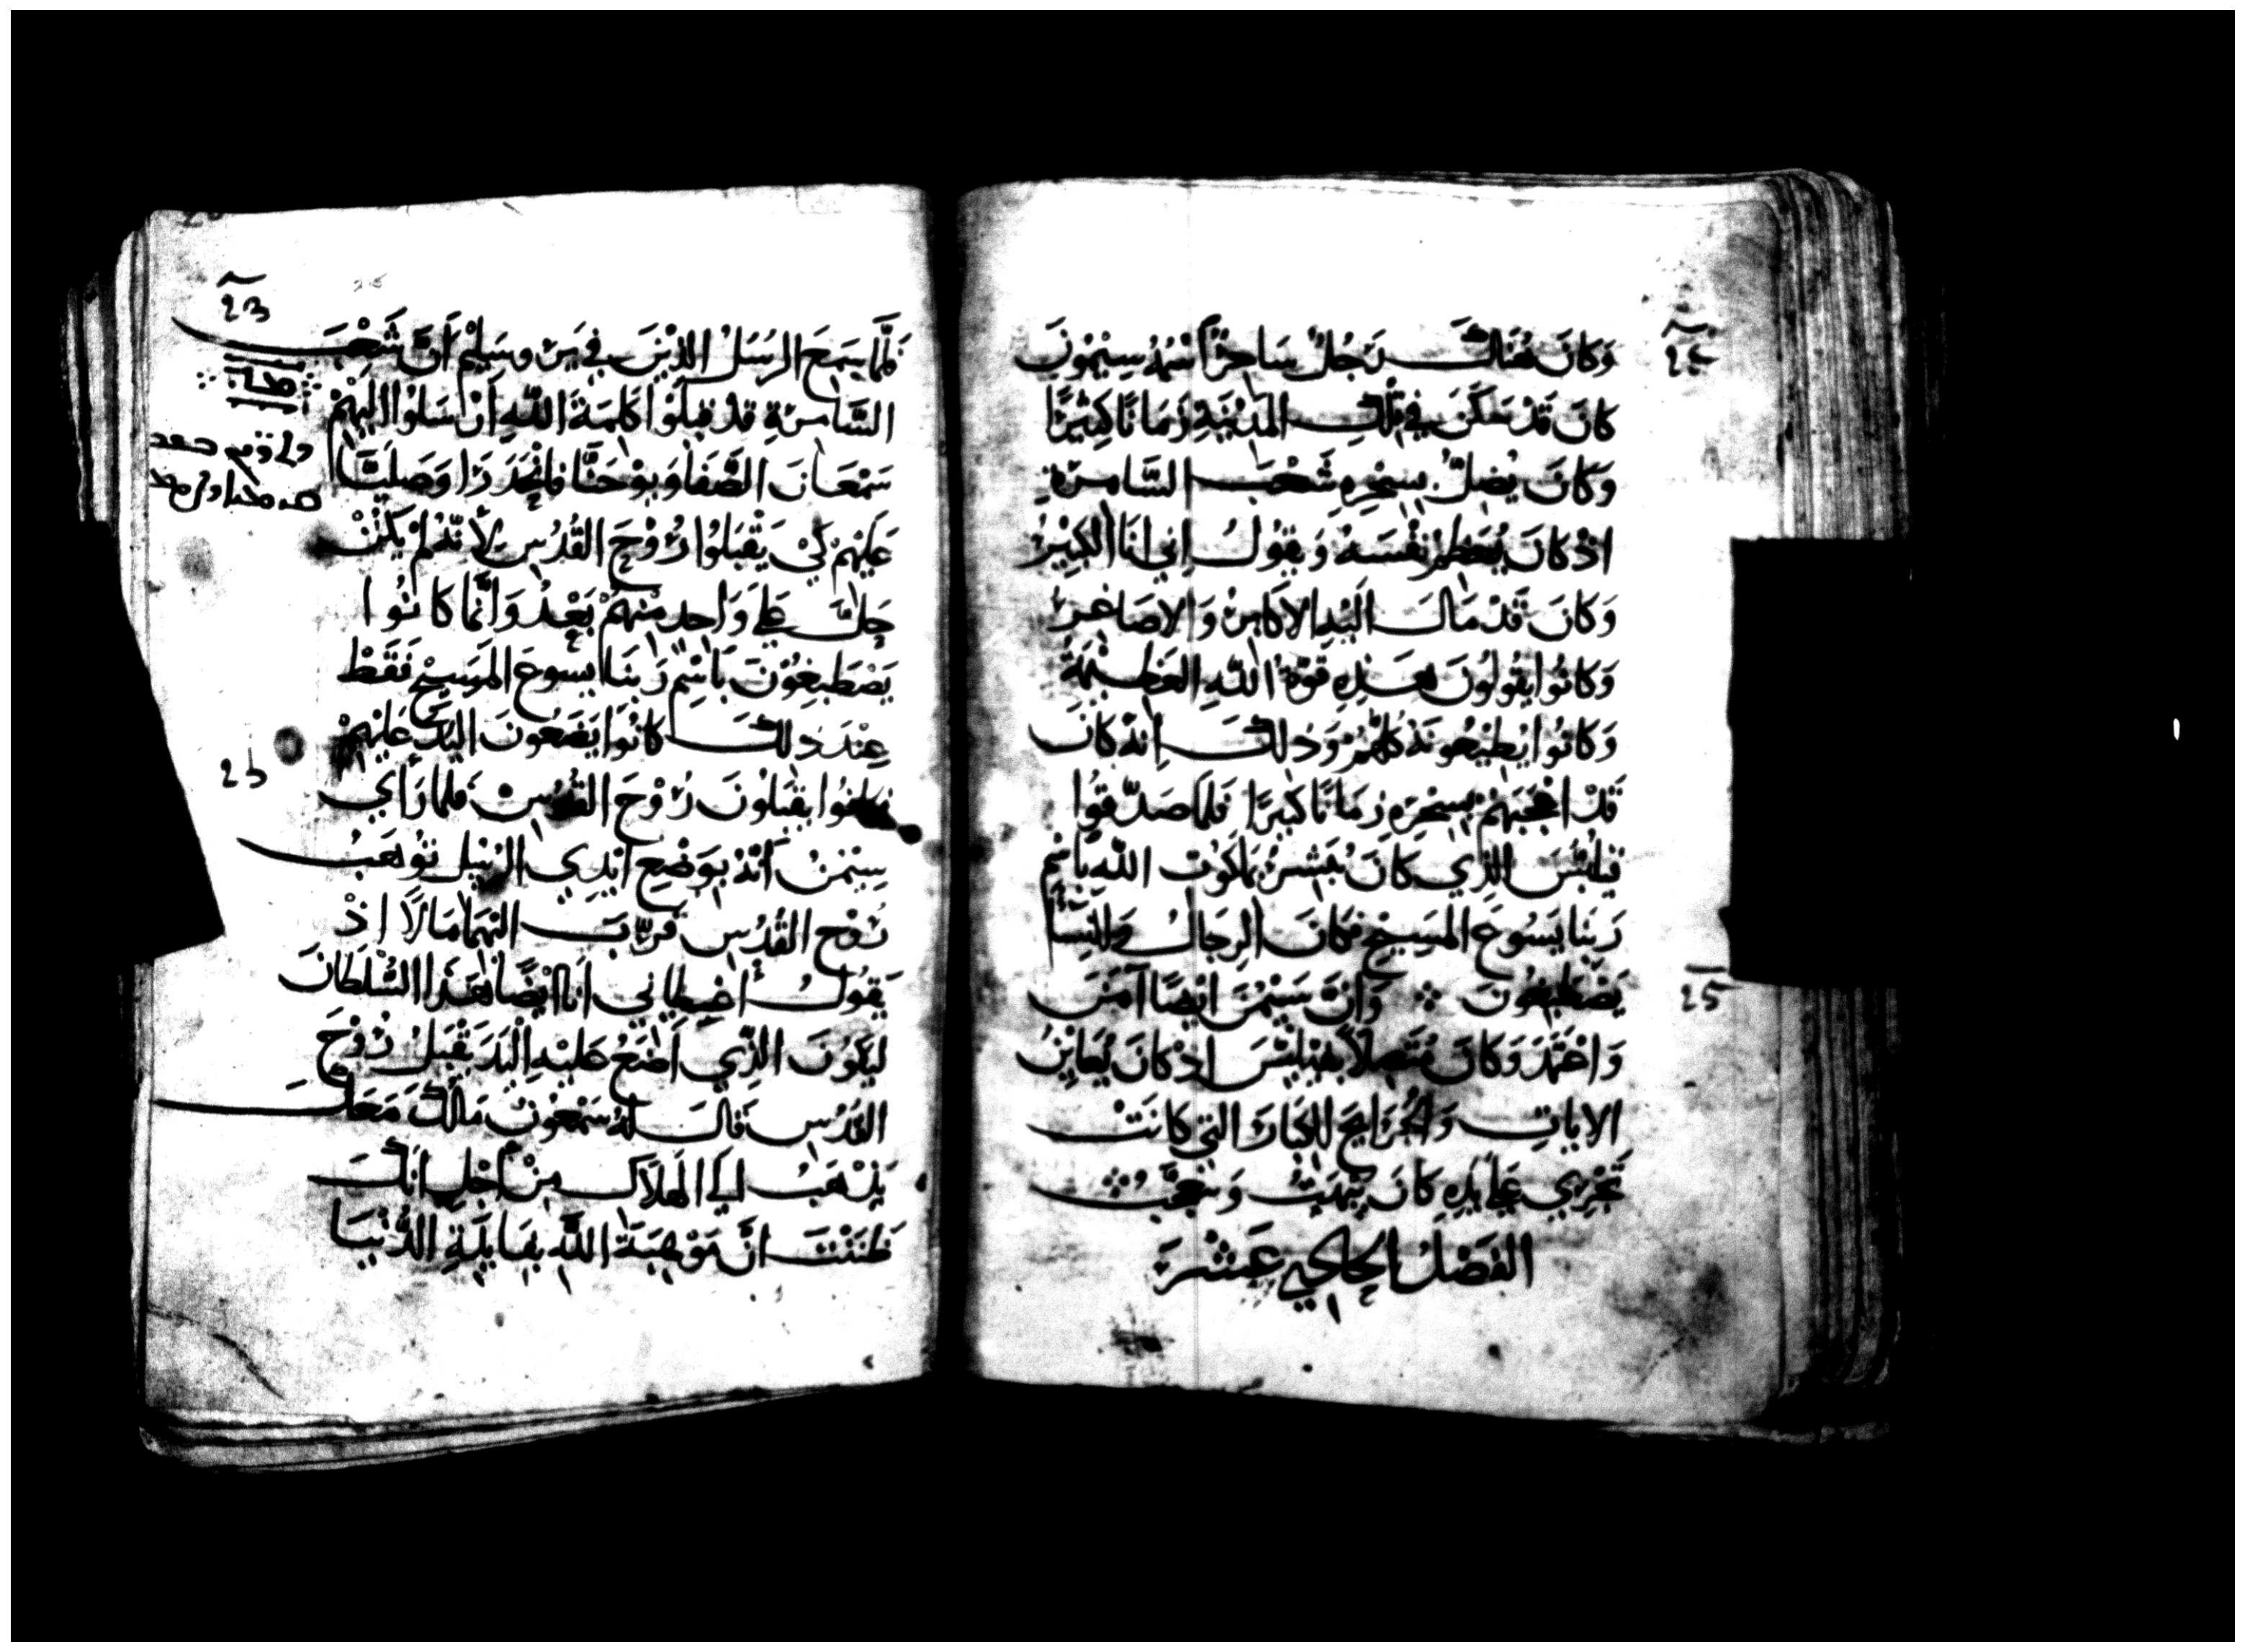 وَكَانَ هُنَاكَ رَجُلٌ سَاحِرٌ اسْمُهُ سِيْمُونَ
كَانَ قَدْ سَكَنَ فِي تِلْكَ المَدِيْنَةِ زَمَانًا كَثِيْرًا
وَكَانَ يُضِلُّ بِسِحْرِهِ شَعْبَ السَّامِرَةِ
اذْ كَانَ يُعَظِّمُ نَفْسَهُ وَيَقُولُ اِني انَا الكَبِيْرُ
وَكَانَ قَدْ مَالَ الَيْهِ الاكَابِرْ وَالاصَاغِرْ
وَكَانُوا يَقُولُونَ هَذِهِ قُوَّةُ اللَّهِ العَظِيْمَةُ
وَكَانُوا يُطِيْعُونَهُ كُلُّهُمْ وَذلكَ اِنهُ كَانَ
قَدْ اعْجَبَهُمْ بِسِحْرِهِ زَمَانًا كَبِيْرًا فَلَمَا صَدَّقُوا
فِيلِبُّسَ الذِي كَانَ يُبَشِرُ بمَلَكُوْت اللَّه بِاسْمِ
رَبِنَا يَسُوعَ المَسِيحِ فكَانَ الرِجَالُ وَالنِسَا
يَصْطَبِغُوْنَ ⁘ وَانَّ سِيْمُنَ ايْضًا آمَنَ
وَاعْتَمَدَ وَكَانَ مُتَصِلاً بفِيْلِبُّسَ اِذْ كَانَ يُعَايِنُ
الايَاتِ وَالجَرَايحَ الكِبَارَ التي كَانَتْ
تَجْرِي عَلَى يَدِهِ كَانَ يُبْهَتُ وَيَتَعَجَّبُ ⁘
الفَصْلُ الحَادِي عَشَرَ
23
فَلَمَّا سَمِعَ الرُسُلُ الذِيْنَ فِي يَرُوسَلِيْمَ اَنَّ شَعْبَ
السَّامِرَةِ قَدْ قَبِلُوْا كَلِمَةَ اللَّهِ ارْسَلُوْا الَيْهِمْ
سَمْعَانَ الصَّفَا وَيُوْحَنَّا فَانْحَدَرَا وَصَلَّيَا
عَلَيْهِمْ كَيْ يَقْبَلُوْا رُوْحَ القُدُسِ لأَنَّهُ لمْ يَكُنْ
حَلَّ عَلَى وَاحِدٍ مِنْهُمْ بَعْدُ وَانَّمَا كَانُوْا
يَصْطَبِغُوْنَ بَاسْمِ رَبِنَا يسوعَ المَسِيحْ فَقَطْ
عِنْدَ ذلكَ كَانُوَا يَضَعُونَ اليَدَ عَلَيْهِمْ
وكَانُوا يَقْبَلُونَ رُوْحَ القُدُسِ فَلمَا رَأي
سِيْمُنُ اَنَّهُ بِوَضْعِ ايْدِي الرُسُلِ تُوْهَبُ
رُوْح القُدُسِ قَرَّبَ الَيْهِمَا مَالاً اِذْ
يَقُولُ اعْطِيَاني انَا ايْضًا هَذَا السُّلْطَانَ
لِيَكُوْنَ الذِي اَضَعُ عَلَيْهِ اليَدَ يَقْبَلُ رُوْحَ
القُدُسِ قَالَ لَهُ سَمْعُونْ مَالُكَ مَعَكَ
يَذْهَبُ الَى الهَلَاكِ مِنْ اَجْلِ انَّكَ
ظَنَنْتَ انَّ مَوْهِبَةَ اللَّه بِقَايِنَةِ الدُّنْيَا